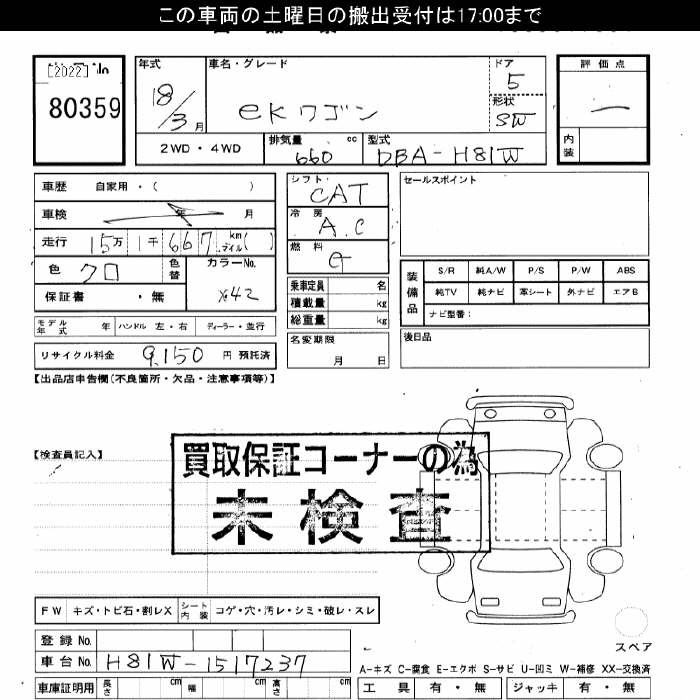 この車両の土曜日の搬出受付は17:00まで
[2022] No
80359
年式
18/3月
車名・グレード
eKワゴン
ドア
5
形状
SW
評価点
—
内装
2WD・4WD
排気量
660 cc
型式
DBA-H81W
車歴 自家用・( )
車検 年 月
走行 15万1千667 km マイル( )
色 クロ
色替
カラーNo.
X42
保証書 ・無
モデル年式 年 ハンドル 左・右 ディーラー・並行
リサイクル料金 9,150 円 預託済
シフト
CAT
冷房
A.C
燃料
G
乗車定員 名
積載量 kg
総重量 kg
名変期限
月 日
セールスポイント
装備品
S/R 純A/W P/S P/W ABS
純TV 純ナビ 革シート 外ナビ エアB
ナビ型番:
後日品
【出品店申告欄(不良箇所・欠品・注意事項等)】
【検査員記入】
買取保証コーナーの為
未検査
FW キズ・トビ石・割レX シート内装 コゲ・穴・汚レ・シミ・破レ・スレ
登録No.
車台No. H81W-1517237
車庫証明用 長さ cm 幅 cm 高さ cm
スペア
A-キズ C-腐食 E-エクボ S-サビ U-凹ミ W-補修 XX-交換済
工具 有・無 ジャッキ 有・無